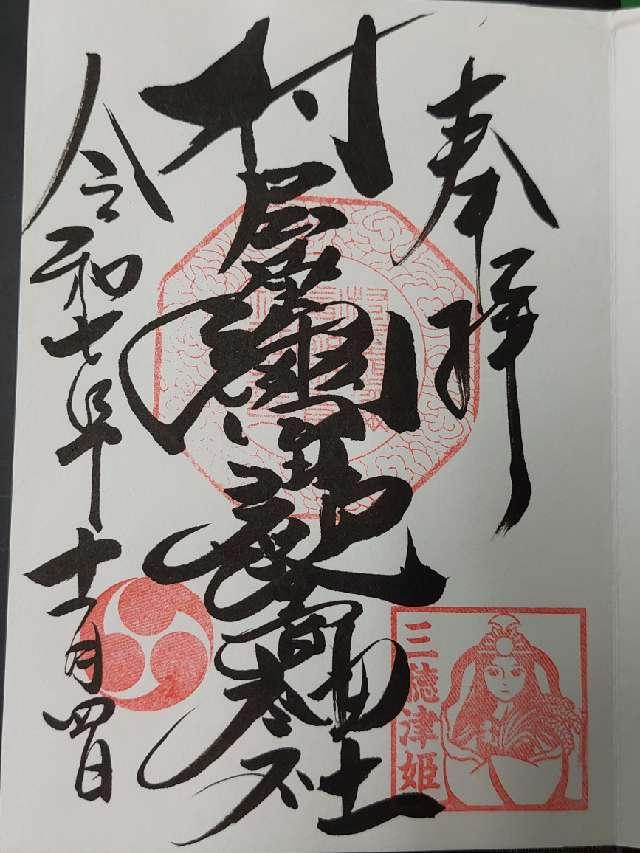 奉拝
村屋坐彌冨都比賣神社
令和七年十一月四日
三穂津姫